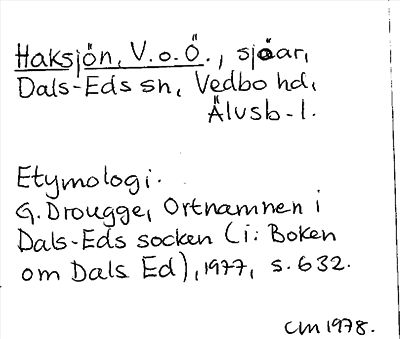 Haksjön, V.o.Ö., sjöar,
Dals-Eds sn, Vedbo hd,
Älvsb-l.
Etymologi.
G. Drougge, Ortnamnen i
Dals-Eds socken (i: Boken
om Dals Ed), 1977, s. 632.
CM 1978.